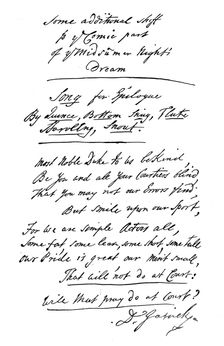 Some additional Stuff
to yᵉ Comic part
of yᵉ Midsumer Night's
Dream
Song for Epilogue
By Quince, Bottom Snug, Flute
Starvling, Snout.
most Noble Duke to us be kind,
Be you and all your Courtiers blind,
That you may not our Errors find,
But smile upon our Sport,
For we are simple Actors all,
Some fat some lean, some short some tall
our Pride is great our merit small,
That will not do at Court:
Will that pray do at Court?
D. Garrick